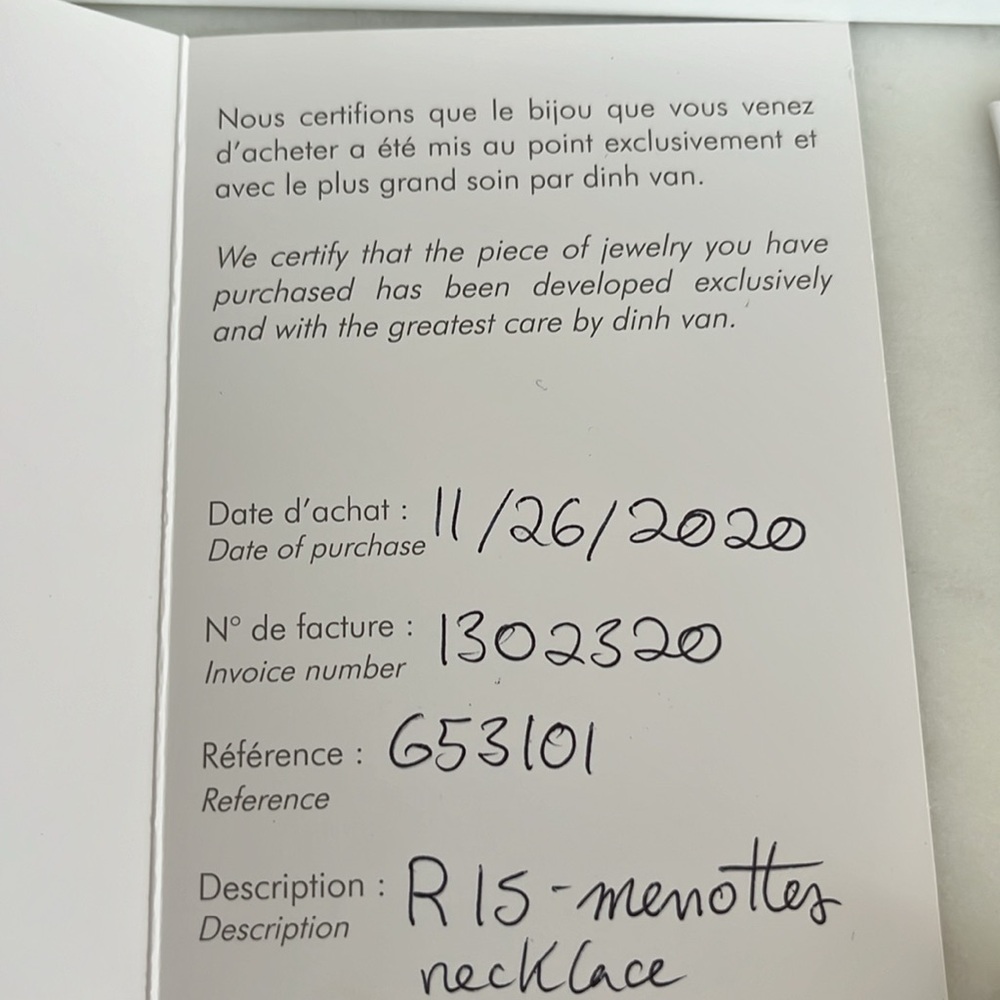 Nous certifions que le bijou que vous venez
d'acheter a été mis au point exclusivement et
avec le plus grand soin par dinh van.
We certify that the piece of jewelry you have
purchased has been developed exclusively
and with the greatest care by dinh van.
Date d'achat : 11/26/2020
Date of purchase
N° de facture : 1302320
Invoice number
Référence : 653101
Reference
Description : R15-menottes
Description
necklace